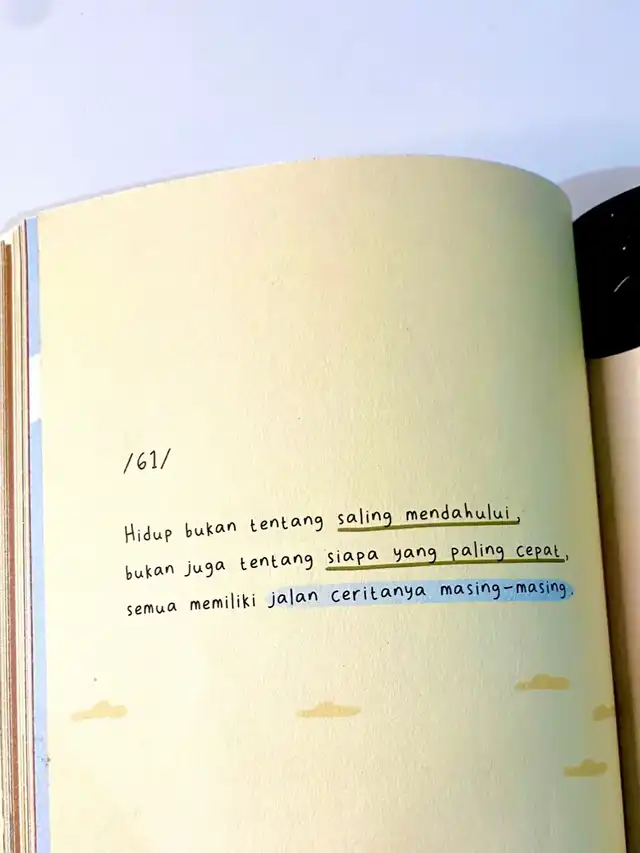 /61/
Hidup bukan tentang saling mendahului,
bukan juga tentang siapa yang paling cepat,
semua memiliki jalan ceritanya masing-masing.